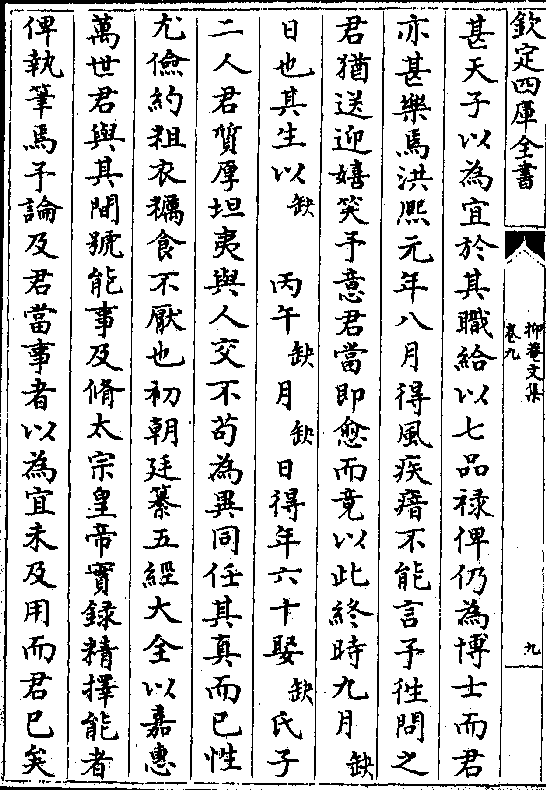 欽定四庫全書
抑菴文集
卷九
九
甚天子以為宜於其職給以七品祿俾仍為博士而君
亦甚樂焉洪熈元年八月得風疾瘖不能言予徃問之
君猶送迎嬉笑予意君當即愈而竟以此終時九月缺
日也其生以缺 丙午缺月缺日得年六十娶缺氏子
二人君質厚坦夷與人交不茍為異同任其真而已性
尤儉約粗衣糲食不厭也初朝廷纂五經大全以嘉惠
萬世君與其間號能事及脩太宗皇帝實錄精擇能者
俾執筆焉予論及君當事者以為宜未及用而君已矣